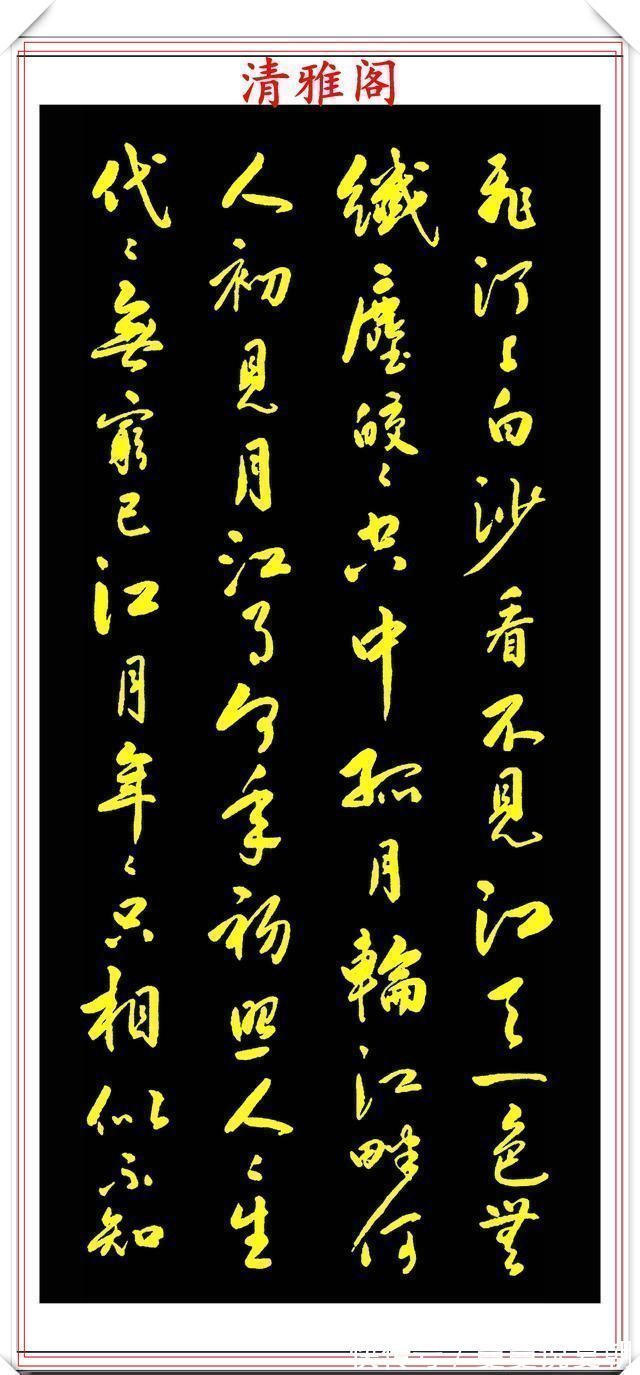 清雅阁
飛汀上白沙看不見江天一色無
纖塵皎〻空中孤月輪江畔何
人初見月江月何年初照人〻生
代〻無窮已江月年〻只相似不知